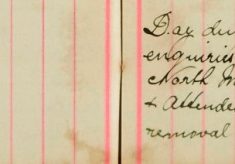 Day du
enquiries
North M
& Attende
removal